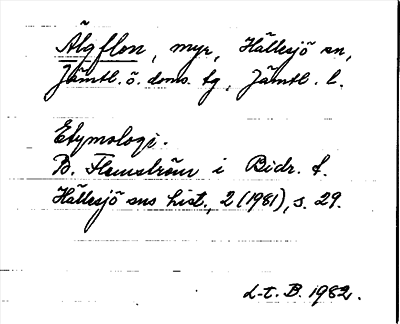 Älgflon, myr, Hällesjö sn,
Jämtl. ö. doms. tg, Jämtl. l.
Etymologi.
B. Flemström i Bidr. t.
Hällesjö sns hist., 2 (1981), s. 29.
d-t. B. 1982.